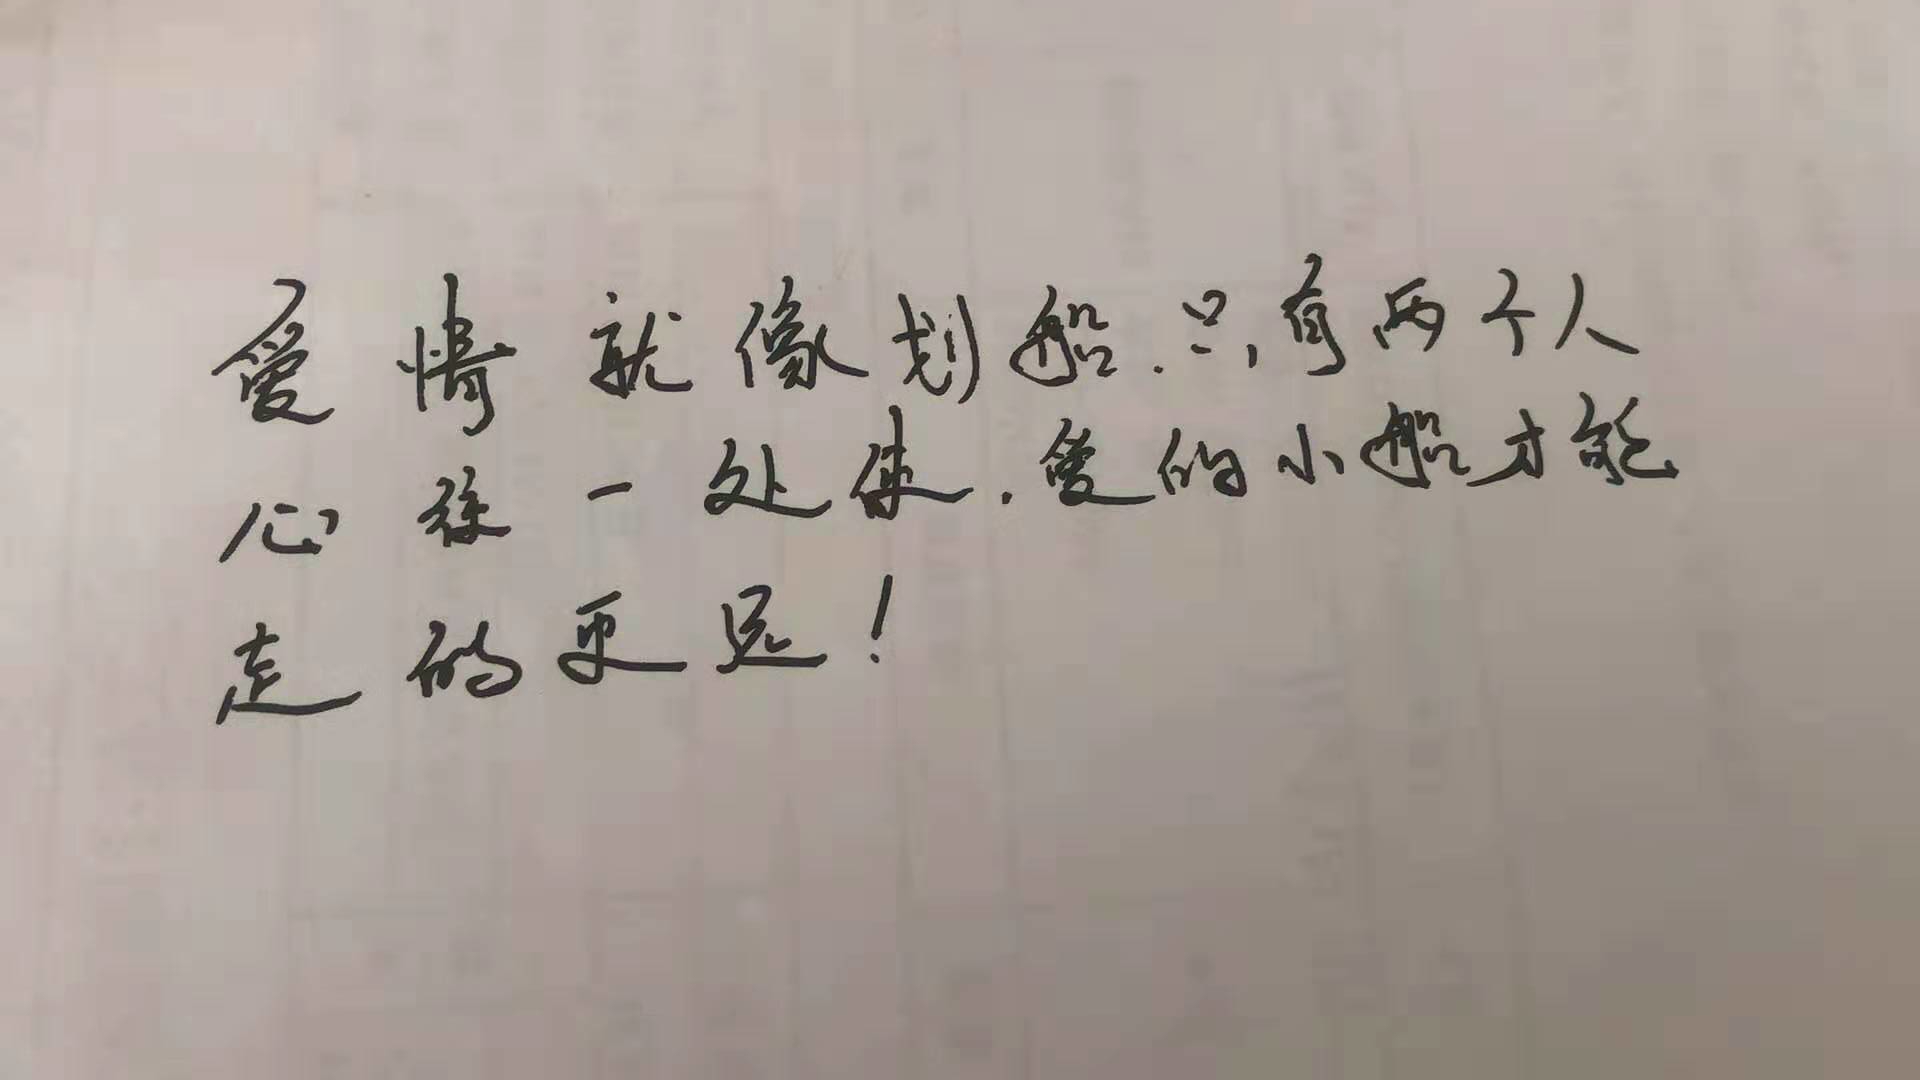 爱情就像划船.只有两个人
心往一处使.爱的小船才能
走的更远!